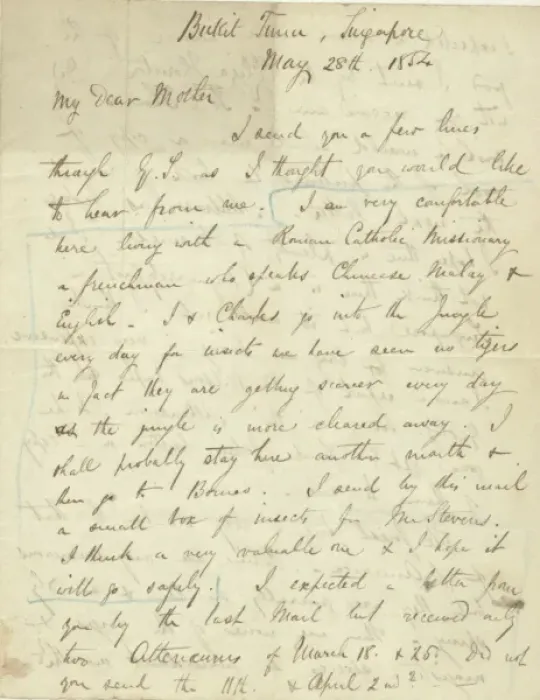 Bukit Tima, Singapore
May 28th. 1854
My Dear Mother
I send you a few lines
through G. S. as I thought you would like
to hear from me. I am very comfortable
here living with a Roman Catholic Missionary
a frenchman who speaks Chineese Malay &
English. I & Charles go into the Jungle
every day for insects we have seen no tigers
in fact they are getting scarcer every day
as the jungle is more cleared away. I
shall probably stay here another month &
then go to Borneo. I send by this mail
a small box of insects for Mr Stevens.
I think a very valuable one & I hope it
will go safely. I expected a letter from
you by the last Mail but received only
two Atheneums of March 18. & 25. Did not
you send the 11th. & April 2nd?